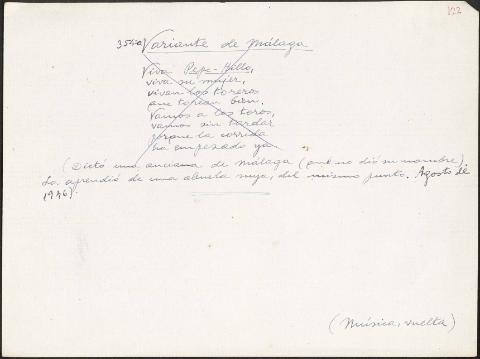 122
354a Variante de Málaga
Viva Pepe-Hillo,
viva su mujer,
vivan los toreros
que torean bien.
Vamos a los toros,
vamos sin tardar
porque la corrida
ha empezado ya
(Dictó una anciana de Málaga (que no dió su nombre).
La aprendió de una abuela suya, del mismo punto. Agosto de
1946).
(Música, vuelta)